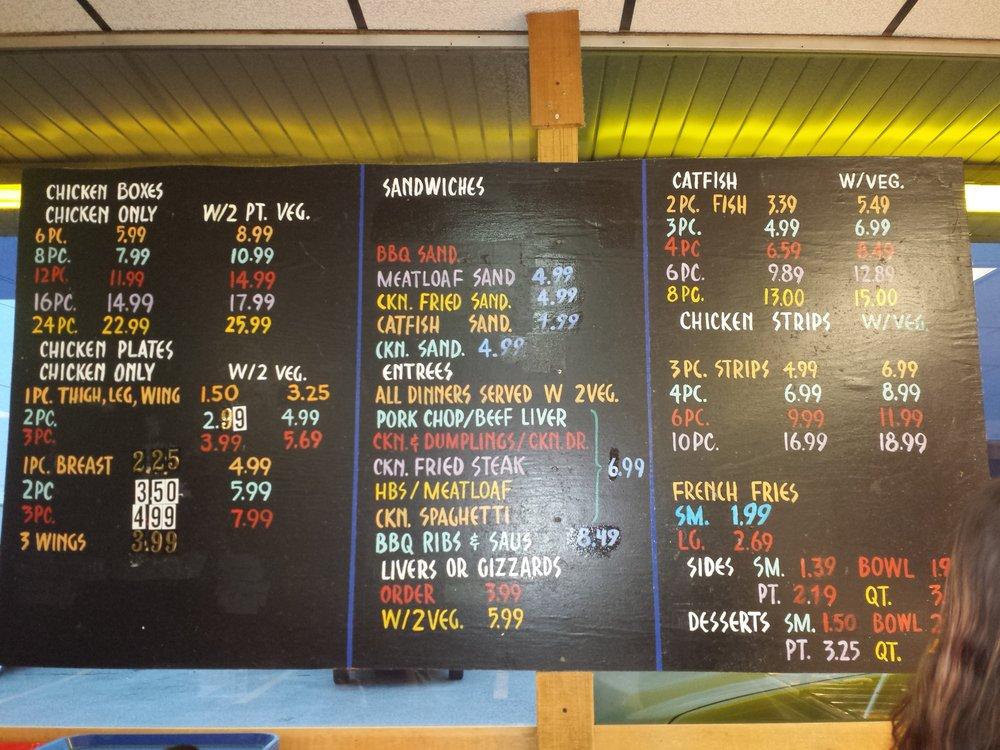 CHICKEN BOXES
CHICKEN ONLY W/2 PT. VEG.
6 PC. 5.99 8.99
8 PC. 7.99 10.99
12 PC. 11.99 14.99
16 PC. 14.99 17.99
24 PC. 22.99 25.99
CHICKEN PLATES
CHICKEN ONLY W/2 VEG.
1 PC. THIGH, LEG, WING 1.50 3.25
2 PC. 2.99 4.99
3 PC. 3.99. 5.69
1 PC. BREAST 2.25 4.99
2 PC 3.50 5.99
3 PC. 4 99 7.99
3 WINGS 3.99
SANDWICHES
BBQ SAND.
MEATLOAF SAND 4.99
CKN. FRIED SAND. 4.99
CATFISH SAND. 4.99
CKN. SAND. 4.99
ENTREES
ALL DINNERS SERVED W 2 VEG.
PORK CHOP/BEEF LIVER
CKN. & DUMPLINGS/CKN. DR.
CKN. FRIED STEAK 6.99
HBS/MEATLOAF
CKN. SPAGHETTI
BBQ RIBS & SAUS 8.49
LIVERS OR GIZZARDS
ORDER 3.99
W/2 VEG. 5.99
CATFISH W/VEG.
2 PC. FISH 3.39 5.49
3 PC. 4.99 6.99
4 PC 6.59 8.49
6 PC. 9.89 12.89
8 PC. 13.00 15.00
CHICKEN STRIPS W/VEG.
3 PC. STRIPS 4.99 6.99
4 PC. 6.99 8.99
6 PC. 9.99 11.99
10 PC. 16.99 18.99
FRENCH FRIES
SM. 1.99
LG. 2.69
SIDES SM. 1.39 BOWL
PT. 2.19 QT.
DESSERTS SM. 1.50 BOWL
PT. 3.25 QT.